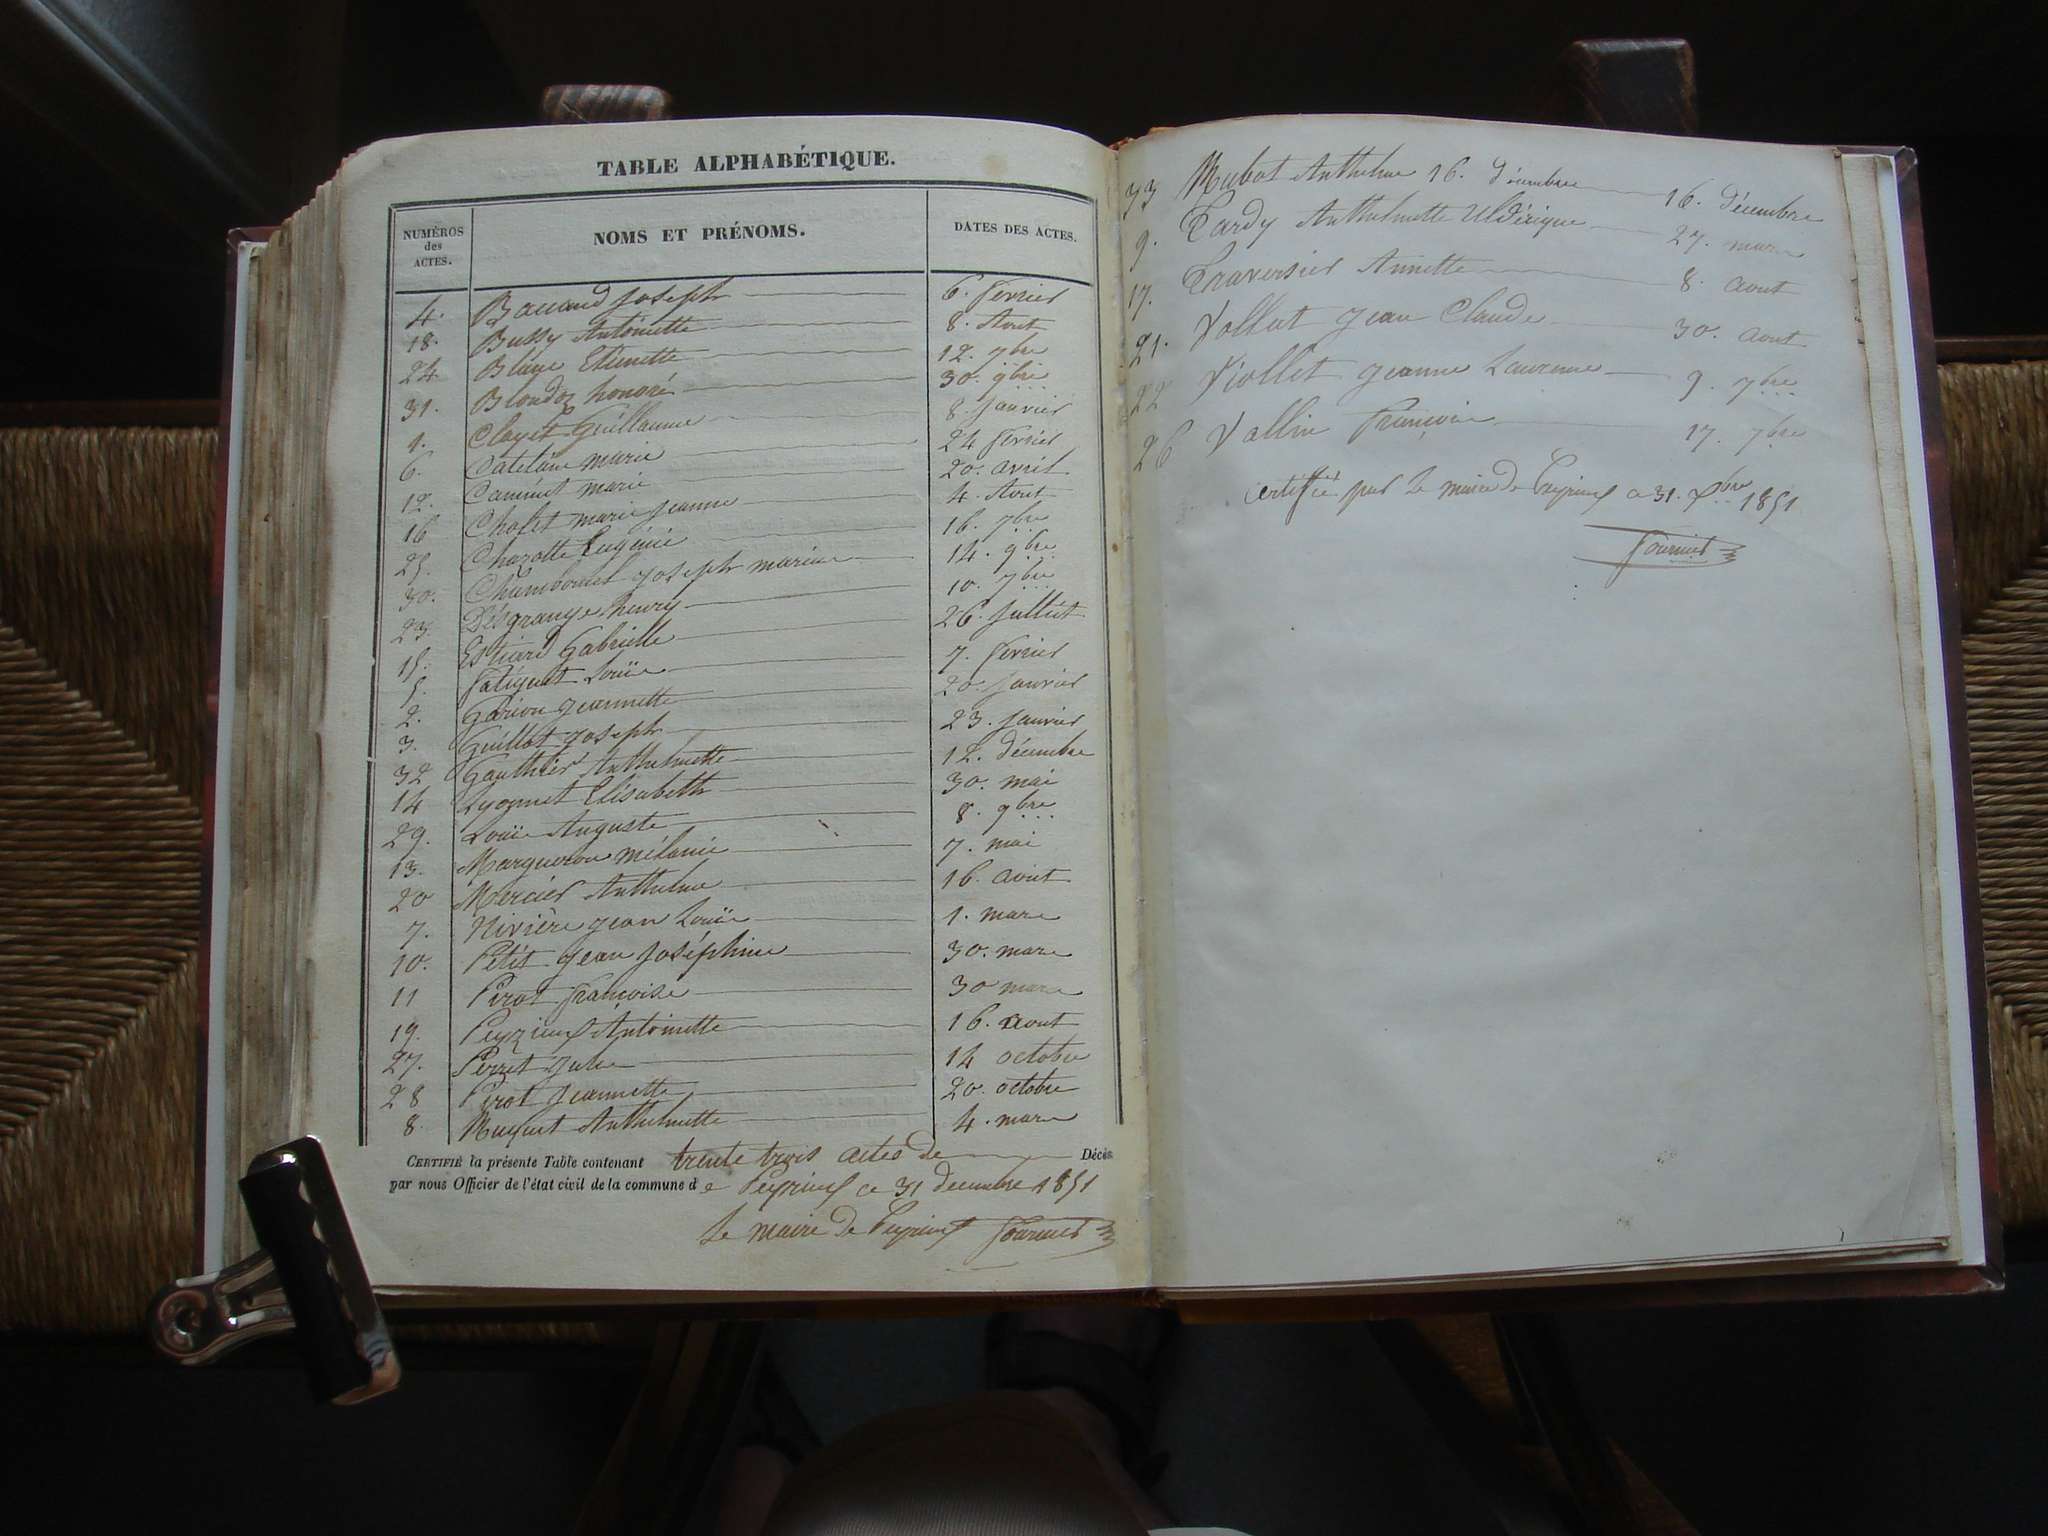 TABLE ALPHABÉTIQUE.
NUMÉROS des ACTES. NOMS ET PRÉNOMS. DATES DES ACTES.
4. Joseph 6. fevrier
18. Bussy Antoinette 8. Aout
24 Etiennette 12. 7bre
31. Blondoz honoré 30. 9bre
1. Clayet Guillaume 8. Janvier
6. Catelain marie 24 fevrier
12. marie 20. avril
16 marie jeanne 4. Aout
25. Chazotte Eugénie 16. 7bre
30. joseph marieu 14. 9bre
23. Désgrange henry 10. 7bre
15. Gabrielle 26. Juillet
5. Louïse 7. fevrier
2. Jeannette 20. Janvier
3. Guillot Joseph 23. Janvier
32 Gauthier Anthelmette 12. décembre
14 Lyonnet Elisabeth 30. mai
29. Louïe Auguste 8. 9bre
13. Margueron mélanie 7. mai
20 Mercier Anthelme 16. aout
7. Nivière jean Louïe 1. mars
10. Petit jean Joséphine 30. mars
11 Pirot françoise 30 mars
19. Peyzieux Antoinette 16. aout
27. Perret Julie 14 octobre
28 Pirot Jeannette 20. octobre
8. Anthelmette 4. mars
CERTIFIÉ la présente Table contenant trente trois actes de Décès
par nous Officier de l'état civil de la commune de Peyrieux ce 31 decembre 1851
Le maire de Peyrieux Fournier
33 Rubat Anthelme 16. décembre 16. décembre
9. Tardy Anthelmette Uldérique 27. mars
17. Traversier Annette 8. aout
21. Vollut Jean Claude 30. aout
22 Viollet jeanne Laurenne 9. 7bre
26 Vallin François 17. 7bre
certiffié par le maire de Peyrieux ce 31. Xbre 1851
Fournier